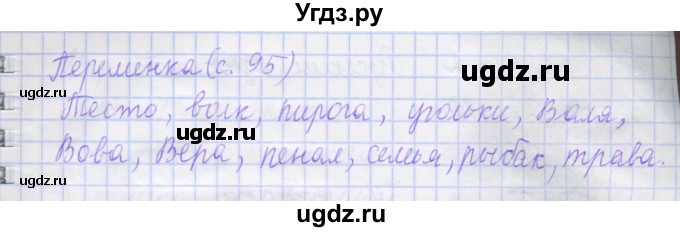 Угдз.ру
Переменка (с. 95)
ugdz.ru
ugdz.ru
ugdz.ru
Тесто, волк, пирога, угольки, Валя,
ugdz.ru
Вова, Вера, пенал, семья, рыбак, трава.
ugdz.ru
ugdz.ru
ugdz.ru